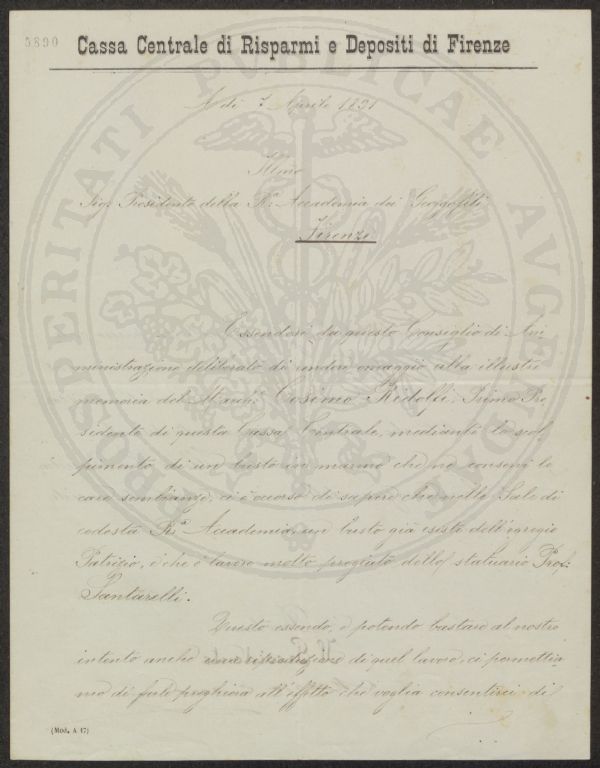 5890
Cassa Centrale di Risparmi e Depositi di Firenze
A dì 7 Aprile 1891
Illmo
Sig. Presidente della R.ª Accademia dei Georgofili
Firenze
Essendosi da questo Consiglio di Am
ministrazione deliberato di rendere omaggio alla illustre
memoria del March. Cosimo Ridolfi, Primo Pre
sidente di questa Cassa Centrale, mediante lo scol
pimento di un busto in marmo che ne conservi le
care sembianze, ci è occorso di sapere che nelle Sale di
codesta R.ª Accademia, un busto già esiste dell'egregio
Patrizio, e che è lavoro molto pregiato dello statuario Prof.
Santarelli.
Questo essendo, e potendo bastare al nostro
intento anche una riproduzione di quel lavoro, ci permettia
mo di farle preghiera all'effetto che voglia consentirci di
(Mod. A 17)
PROSPERITATI PUBLICAE AUGENDAE